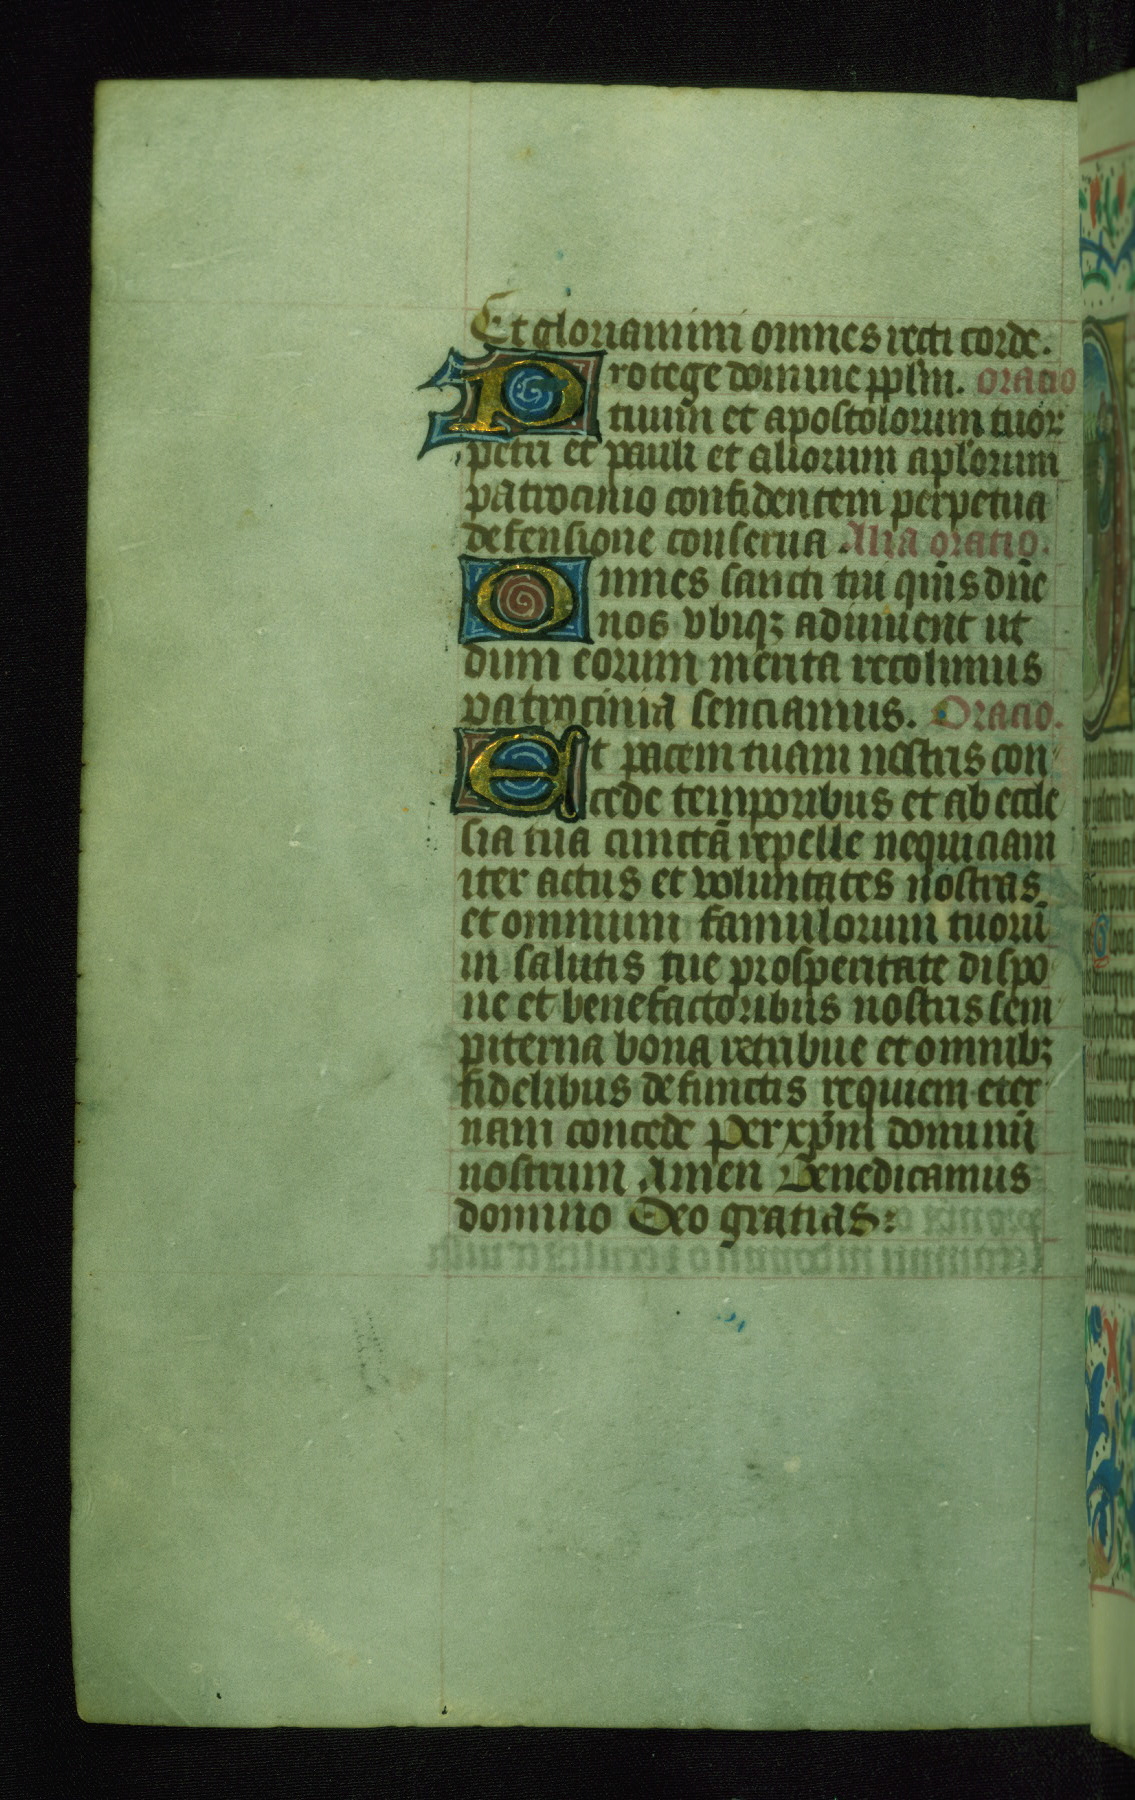 Et gloriamini omnes recti corde.
Protege domine pplm. oracio
tuum et apostolorum tuor
petri et pauli et aliorum aplorum
patrocinio confidentem perpetua
defensione conserua. Alia oratio.
Omnes sancti tui qūs dn̄e
nos vbiqꝫ adiuuent ut
dum eorum merita recolimus
patrocinia senciamus. Oracio.
Et pacem tuam nostris con
cede temporibus et ab eccle
sia tua cunctā repelle nequiciam
iter actus et voluntates nostras
et omnium famulorum tuorū
in salutis tue prosperitate dispo
ne et benefactoribus nostris sem
piterna bona retribue et omnibꝫ
fidelibus defunctis requiem eter
nam concede Per xp̄m dominū
nostrum Amen Benedicamus
domino Deo gratias: